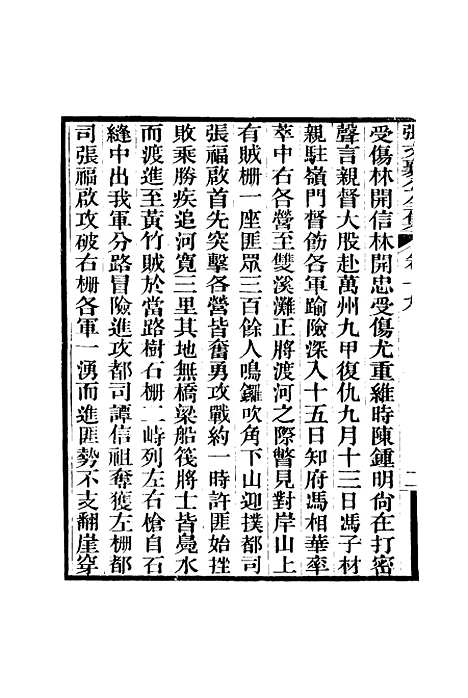 張文襄公全集 卷十九 二
受傷林開信林開忠受傷尤重維時陳鍾明尙在打密
聲言親督大股赴萬州九甲復仇九月十三日馮子材
親駐嶺門督飭各軍踰險深入十五日知府馮相華率
萃中右各營至雙溪灘正將渡河之際瞥見對岸山上
有賊柵一座匪眾三百餘人鳴鑼吹角下山迎撲都司
張福啟首先突擊各營皆奮勇攻戰約一時許匪始挫
敗乘勝疾追河寬三里其地無橋梁船筏將士皆鳧水
而渡進至黃竹賊於當路樹石柵二峙列左右槍自石
縫中出我軍分路冒險進攻都司譚信祖奪獲左柵都
司張福啟攻破右柵各軍一湧而進匪勢不支翻崖穿